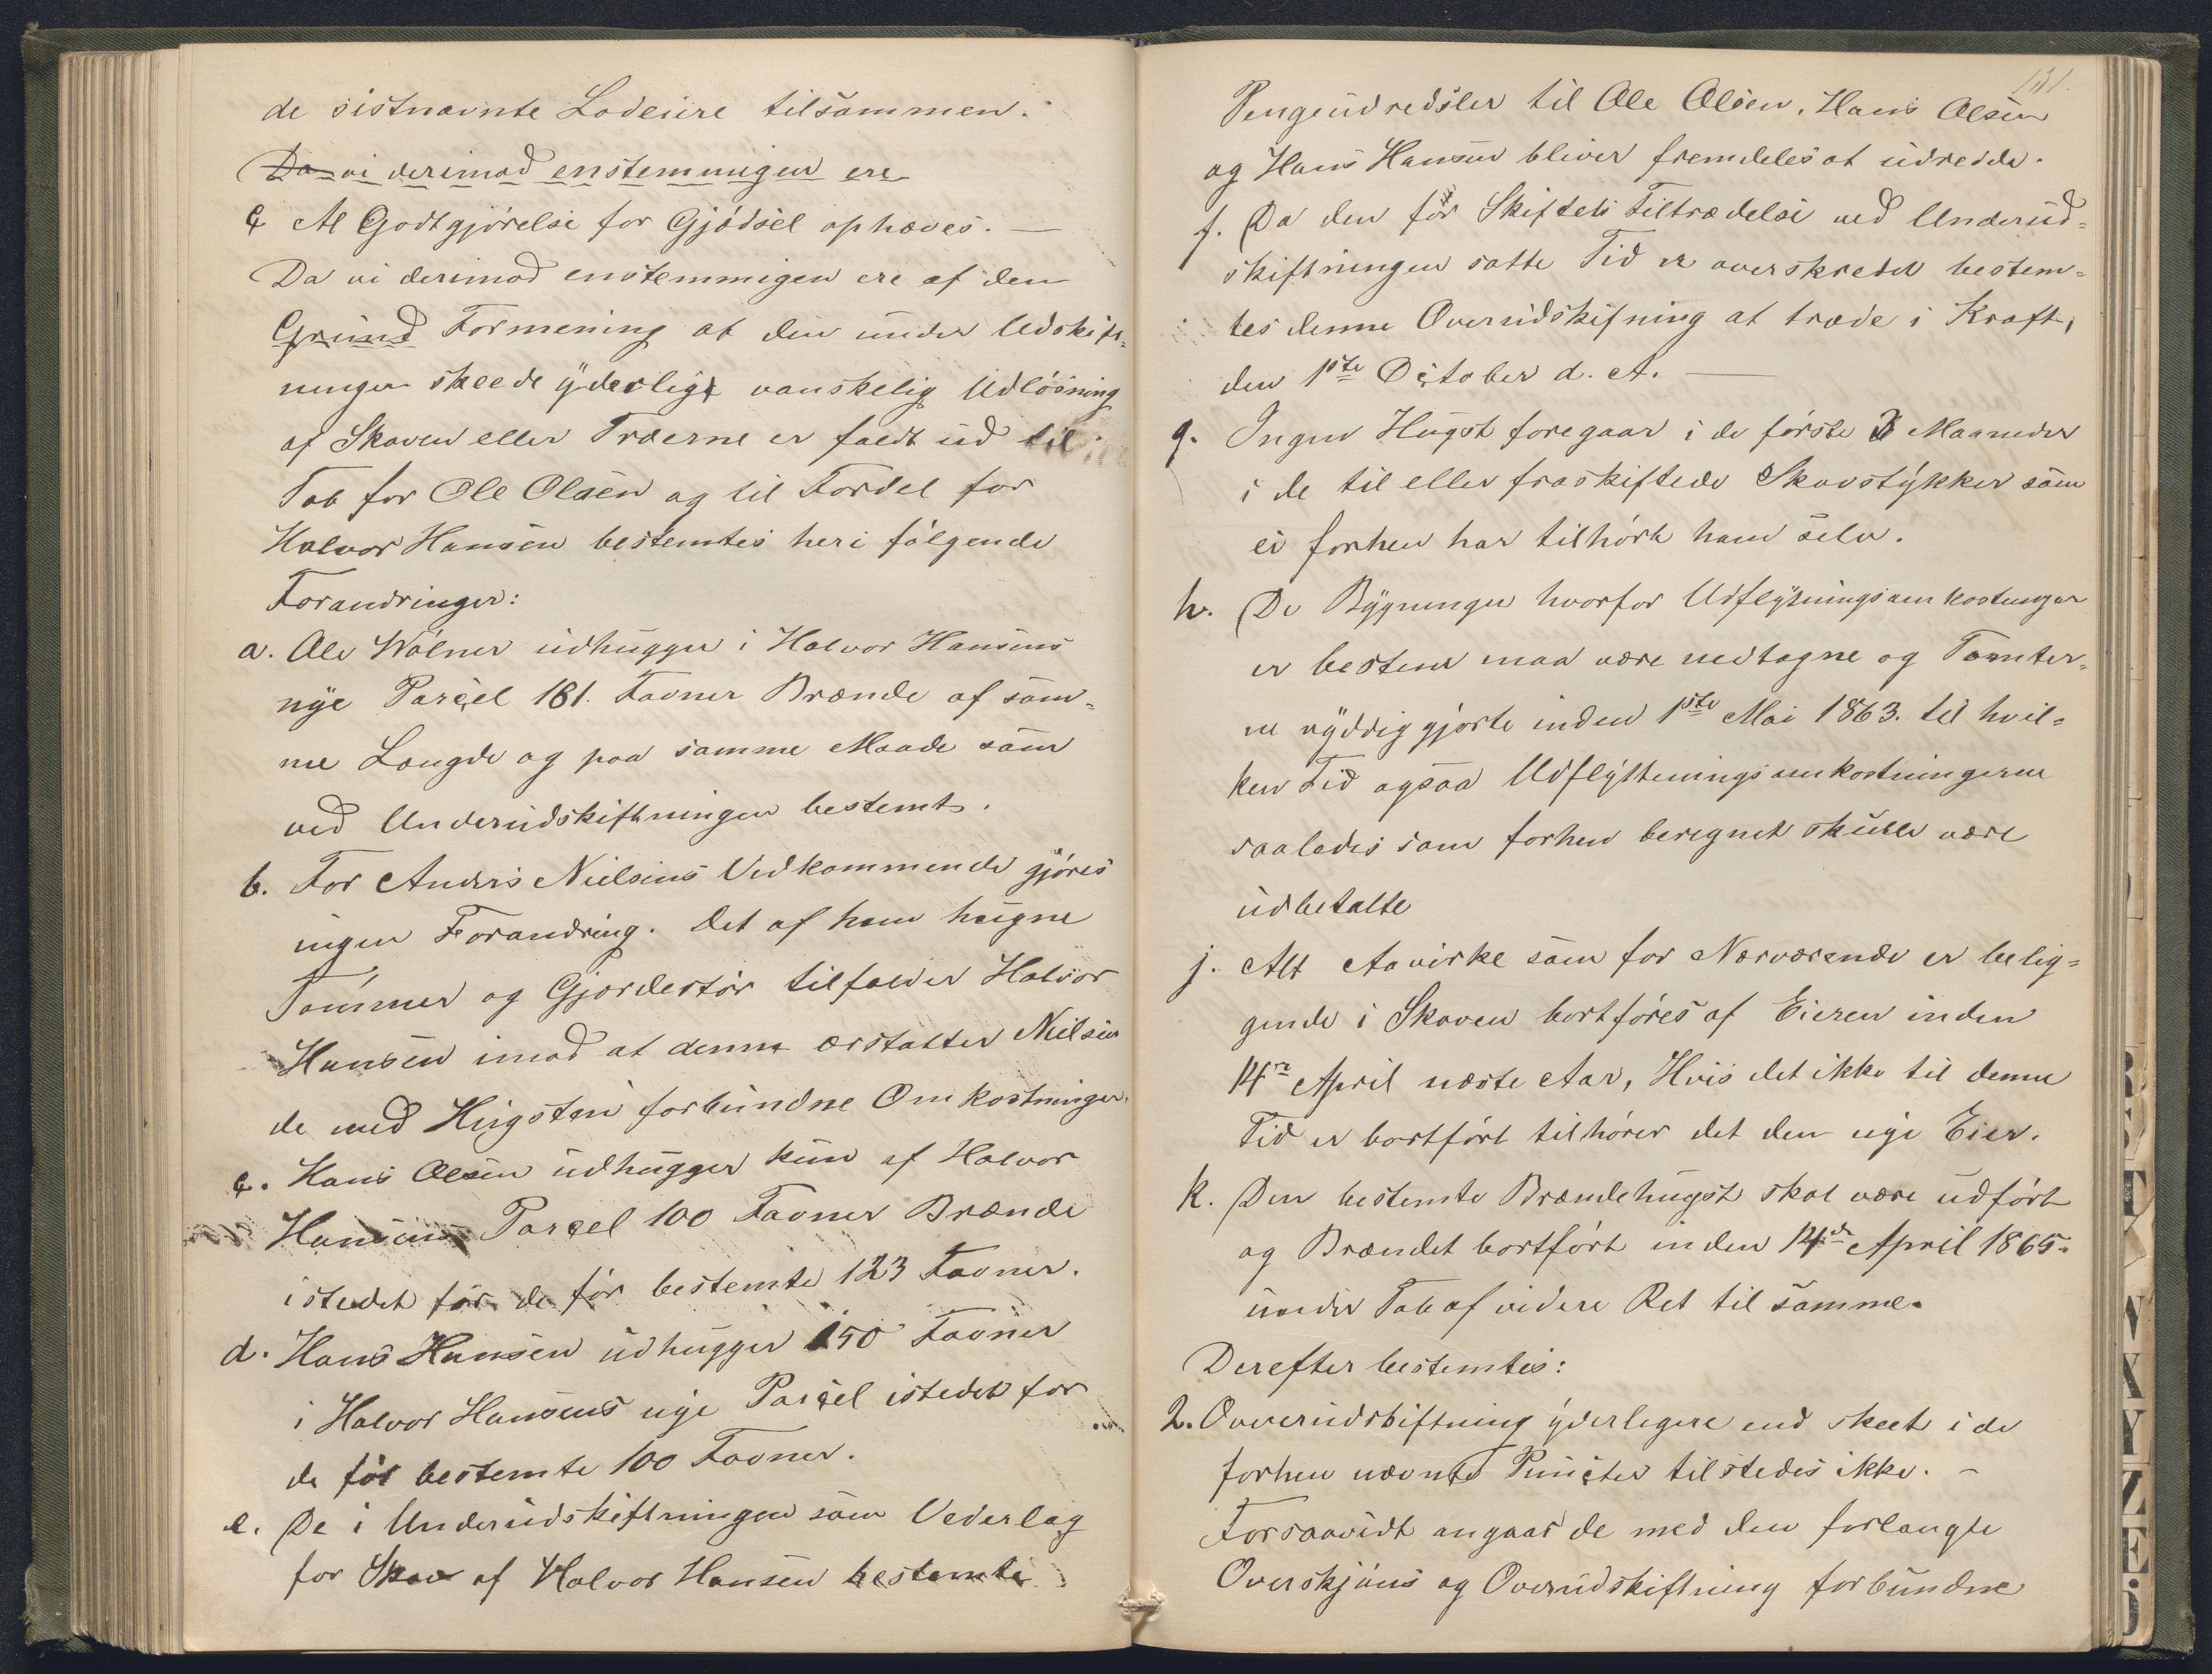 de sistnævnte Lodeiere tilsammen.
Da vi derimod enstemmigen ere
c Al Godtgjørelse for Gjødsel ophæves. —
Da vi derimod enstemmigen ere af den
Grund Formening at den under Udskift-
ningen skeede yderligt vanskelig Udløsning
af Skoven eller Træerne er faldt ud til
Tab for Ole Olsen og til Fordel for
Halvor Hansen bestemtes heri følgende
Forandringer:
a. Ole Wølner udhugger i Halvor Hansens
nye Parcel 181. Favner Brænde af sam-
me Længde og paa samme Maade som
ved Underudskiftningen bestemt.
b. For Anders Nielsens Vedkommende gjøres
ingen Forandring. Det af ham hugne
Tømmer og Gjærdestør tilfalder Halvor
Hansen imod at denne erstatter Nielsen
de med Hugsten forbundne Omkostninger.
c. Hans Olsen udhugger kun af Halvor
Hansens Parcel 100 Favner Brænde
istedet for de før bestemte 123 Favner.
d. Hans Hansen udhugger 150 Favner
i Halvor Hansens nye Parcel istedet for
de før bestemte 100 Favner.
e. De i Underudskiftningen som Vederlag
for Skov af Halvor Hansen bestemte
131.
Pengeudredsler til Ole Olsen, Hans Olsen
og Hans Hansen bliver fremdeles at udrede.
f. Da den for Skiftets Tiltrædelse ved Underud-
skiftningen satte Tid er overskredet bestem-
tes denne Overudskifning at træde i Kraft,
den 1ste October d. A. —
g. Ingen Hugst foregaar i de første 3 Maaneder
i de til eller fraskiftede Skovstykker som
ei forhen har tilhørt ham selv.
h. De Bygninger hvorfor Udflytningsomkostninger
er bestemt maa være nedtagne og Tomter-
ne ryddiggjorte inden 1ste Mai 1863. til hvil-
ken Tid ogsaa Udflyttningsomkostningerne
saaledes som forhen beregnet skulle være
udbetalte
j. Alt Aavirke som for Nærværende er belig-
gende i Skoven bortføres af Eieren inden
14de April næste Aar, Hvis det ikke til denne
Tid er bortført tilhører det den nye Eier.
k. Den bestemte Brændehugst skal være udført
og Brændet bortført inden 14de April 1865.
under Tab af videre Ret til samme.
Derefter bestemtes:
2. Overudskiftning yderligere end skeet i de
forhen nævnte Puncter tilstedes ikke. —
Forsaavidt angaar de med den forlangte
Overskjøns og Overudskiftning forbundne